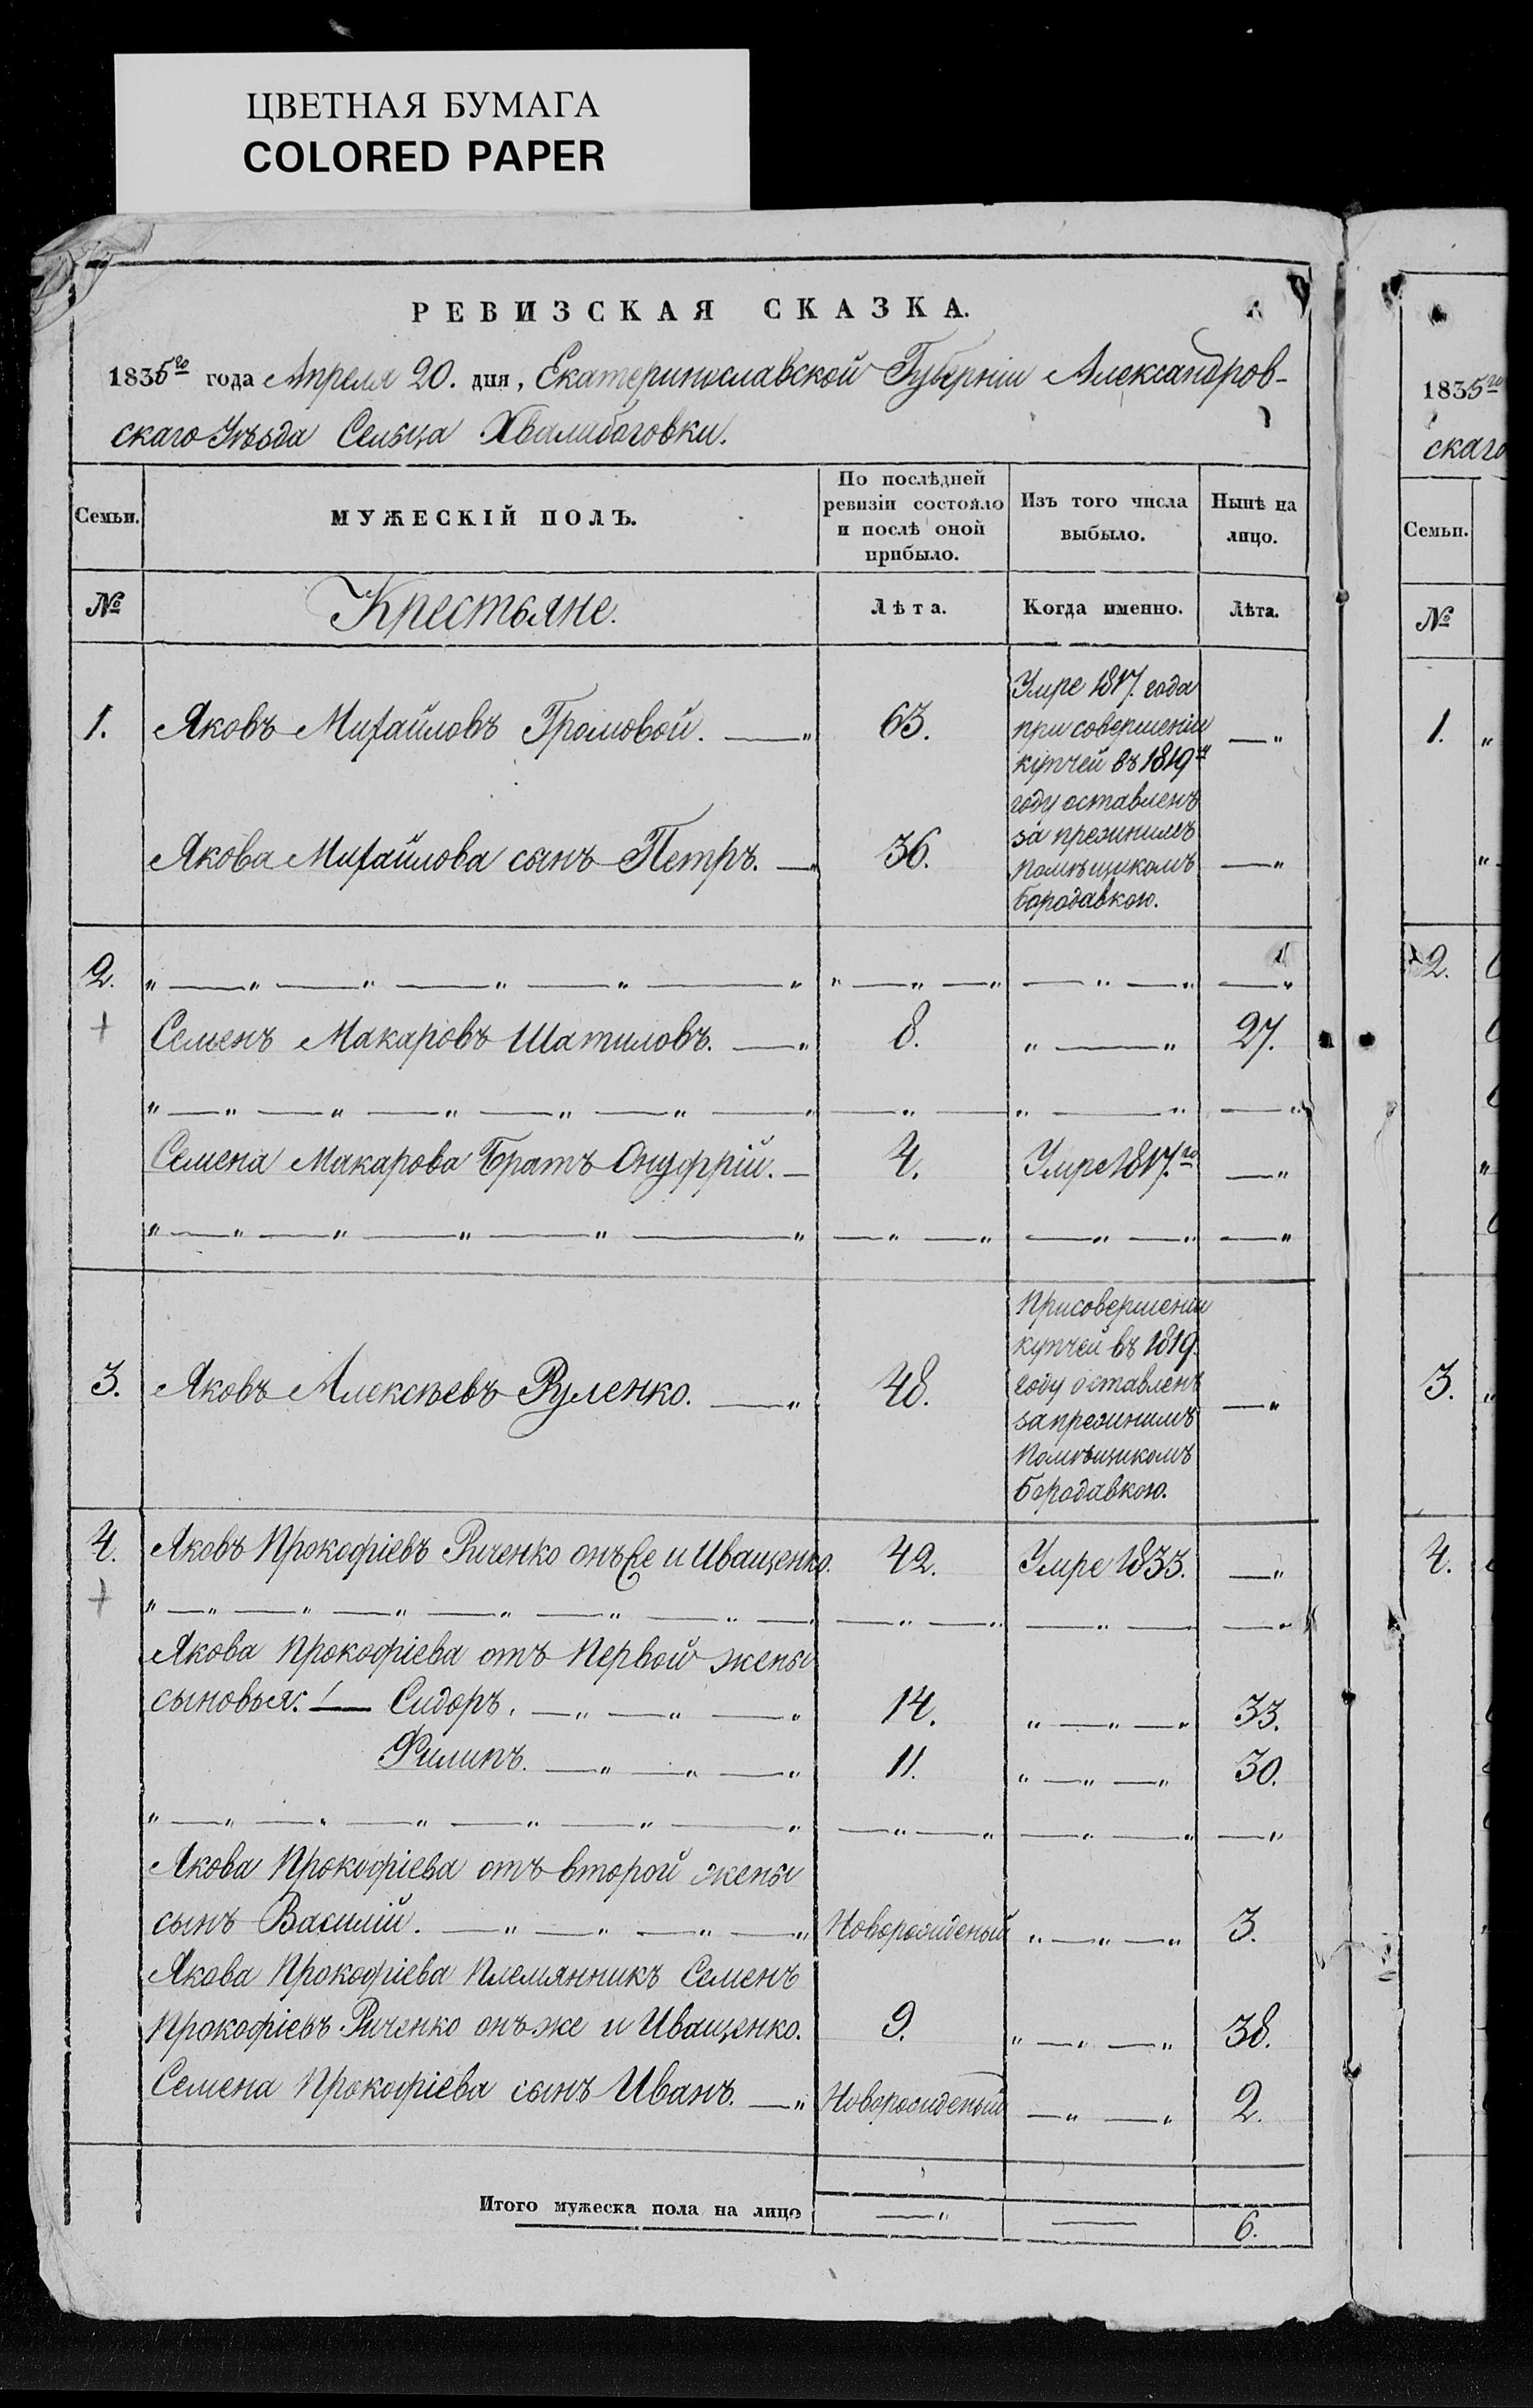 ЦВЕТНАЯ БУМАГА
COLORED PAPER
РЕВИЗСКАЯ СКАЗКА.
1835го года Апреля 20. дня, Екатеринославской Губерніи Александров-
скаго Уѣзда Сельца Хвалибоговки.
Семьи.
МУЖЕСКІЙ ПОЛЪ.
По послѣдней
ревизіи состояло
и послѣ оной
прибыло.
Изъ того числа
выбыло.
Нынѣ на
лицо.
№
Крестьяне.
Лѣта.
Когда именно.
Лѣта.
1. Яковъ Михайловъ Громовой. — „ 63. Умре 1817. года — „
Якова Михайлова сынъ Петръ. — „ 36.
при совершеніи
купчей въ 1819м
году оставленъ
за прежнимъ
помѣщикомъ
Бородавкою. — „
2. „ — „ — „ — „ — „ — „ „ — „ — „ — „ — „ — „
+ Семенъ Макаровъ Шатиловъ. — „ 8. „ — „ 27.
„ — „ — „ — „ — „ — „ — „ — „ — „ — „ — „
Семена Макарова Братъ Онуфрій. — 4. Умре 1817.го — „
„ — „ — „ — „ — „ — „ — „ — „ — „ — „ — „
3. Яковъ Алексѣевъ Руленко. — „ 48.
При совершеніи
купчей въ 1819.
году оставленъ
за прежнимъ
Помѣщикомъ
Бородавкою. — „
4. Яковъ Прокофіевъ Риченко онъ же и Иващенко. 42. Умре 1833. — „
+ „ — „ — „ — „ — „ — „ — „ — — „ — „ — „ — — „
Якова Прокофіева отъ Первой жены
сыновья: 1 — Сидоръ. — „ — „ — „ 14. „ — „ — „ 33.
Филипъ. — „ — „ — „ 11. „ — „ — „ 30.
„ — „ — „ — „ — „ — „ — „ — „ — „ — „ — „ — „
Якова Прокофіева отъ второй жены
сынъ Василій. — „ — „ — „ — „ Новорожденый „ — „ — „ 3.
Якова Прокофіева Племянникъ Семенъ
Прокофіевъ Риченко онъ же и Иващенко. 9. „ — „ — „ 38.
Семена Прокофіева сынъ Иванъ. — „ Новорожденый — „ — „ 2.
Итого мужеска пола на лицо — „ — 6.
1835го
скаго
Семьи.
№
1. „
„
2.
„
3. „
4.